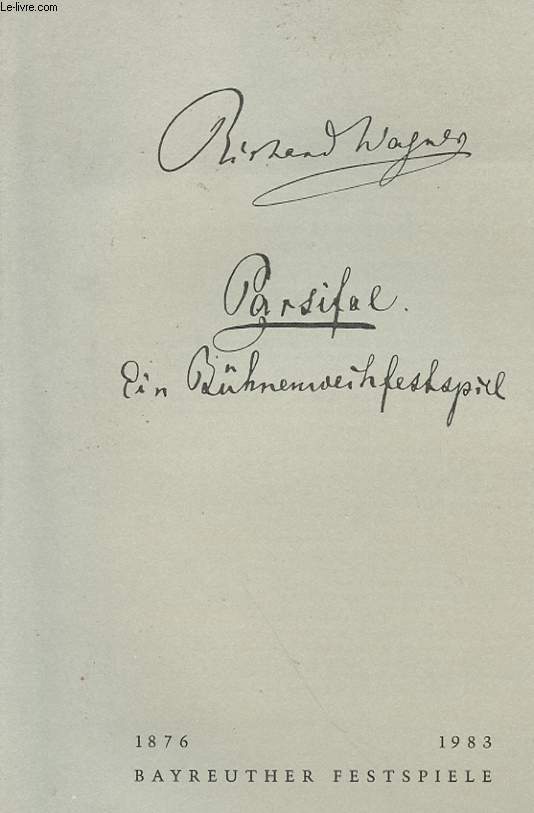 Le-livre.com
Richard Wagner
Parsifal.
Ein Bühnenweihfestspiel
1876 1983
BAYREUTHER FESTSPIELE